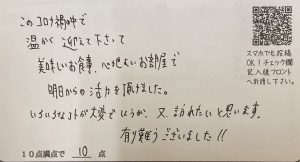 このコロナ禍の中で
温かく迎えて下さって
美味しいお食事、心地よいお部屋で
明日からの活力を頂けました。
いろいろなコトが大変でしょうが、又、訪れたいと思います。
有難うございました!!
10点満点で 10 点
スマホでも投稿
OK!チェック欄
記入後フロント
へお渡し下さい。